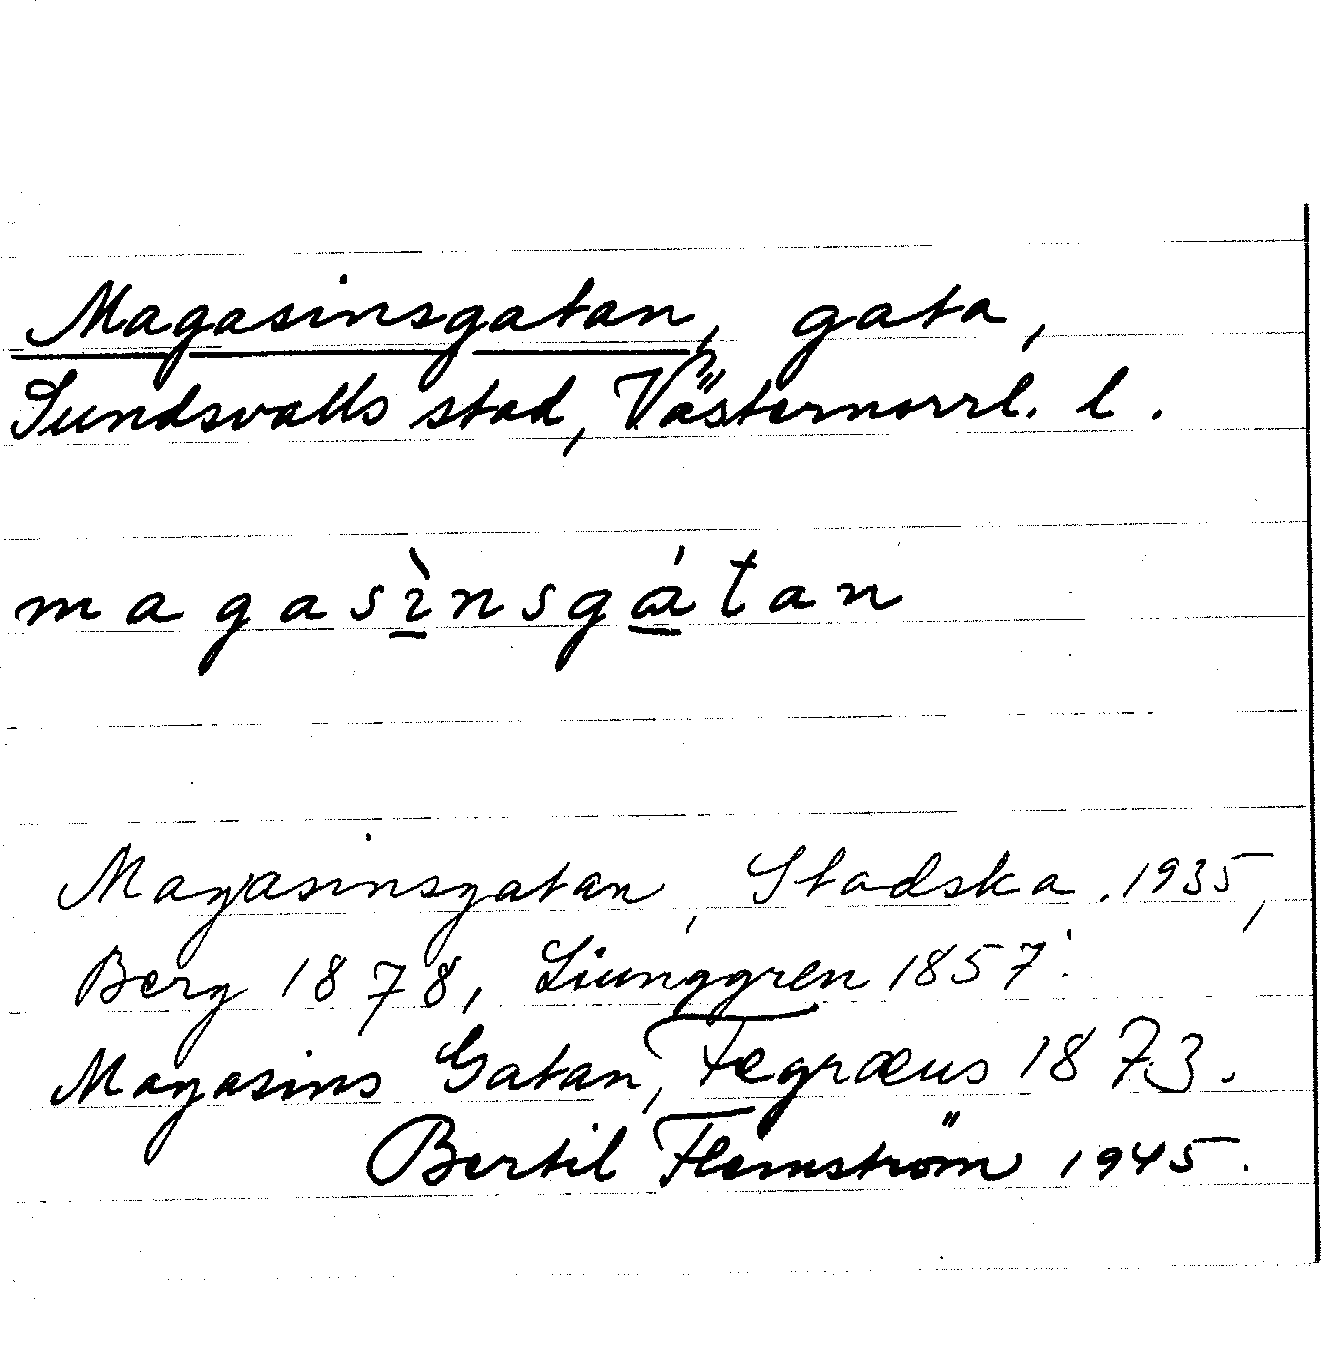 Magasinsgatan, gata,
Sundsvalls stad, Västernorrl. l.
magasìnsgátan
Magasinsgatan, Stadska. 1935,
Berg 1878, Liunggren 1857.
Magasins Gatan, Fegræus 1873.
Bertil Flemström 1945.